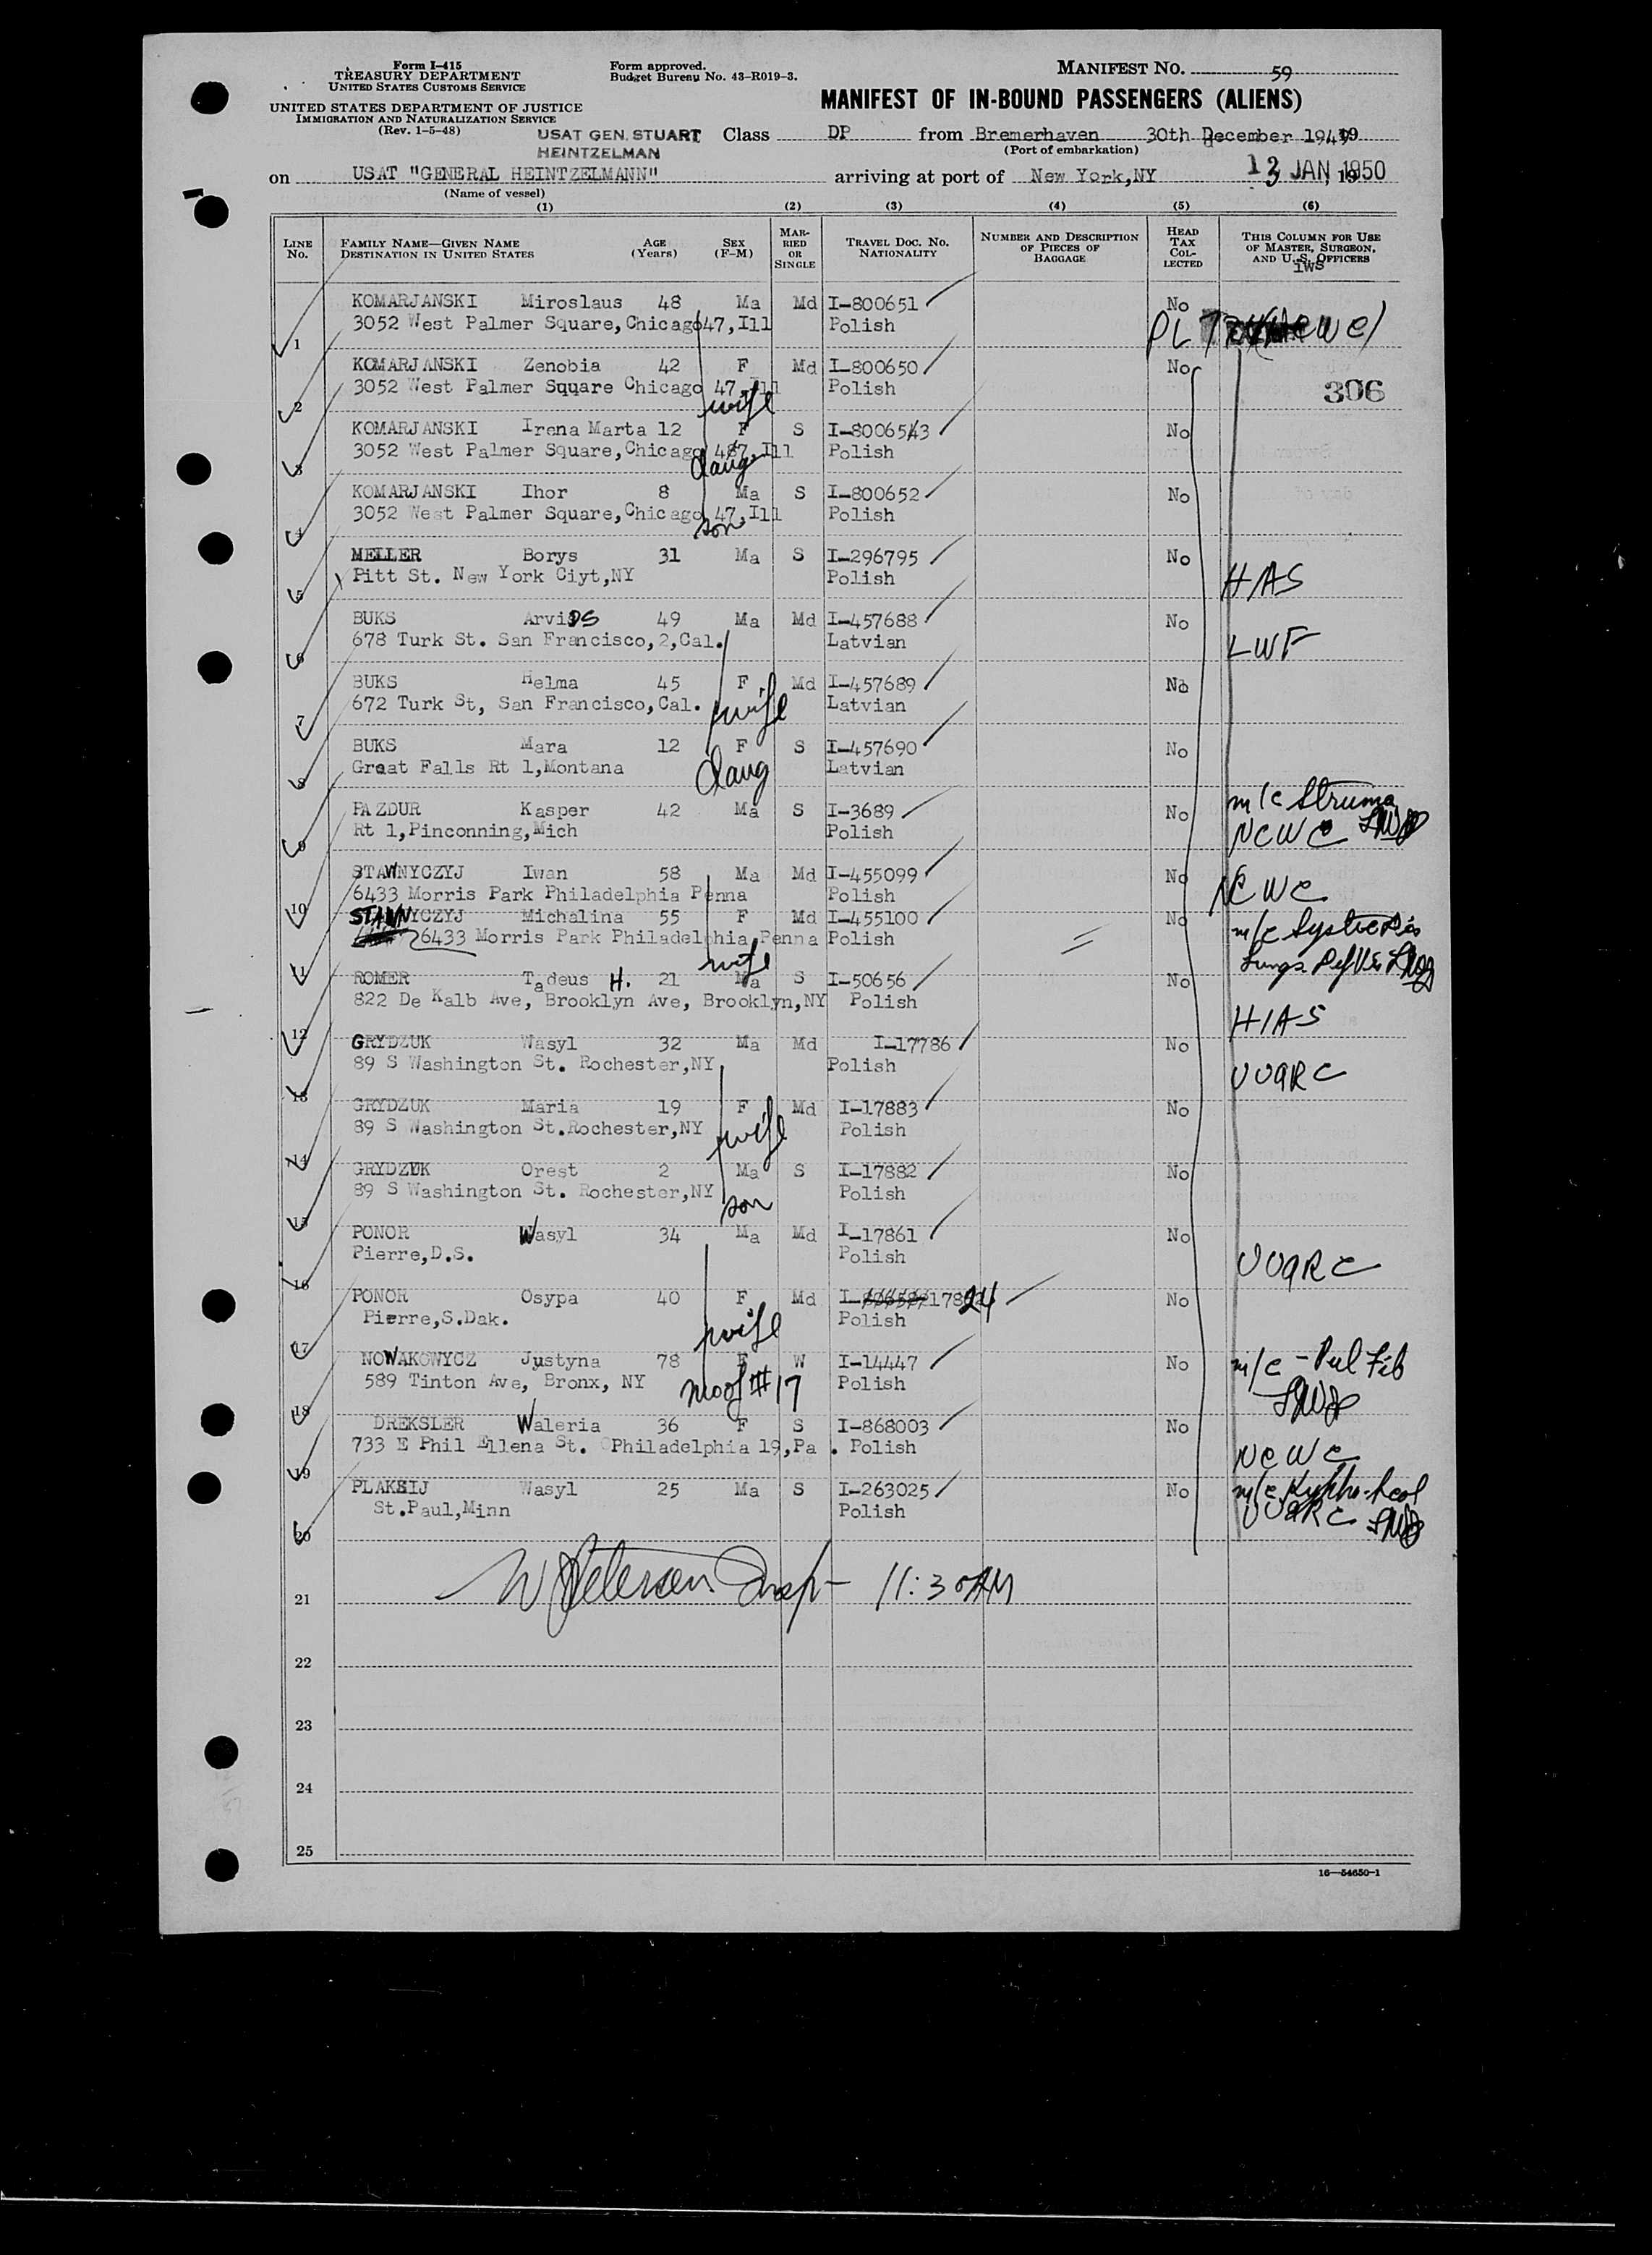 Form I-415
TREASURY DEPARTMENT
UNITED STATES CUSTOMS SERVICE
UNITED STATES DEPARTMENT OF JUSTICE
IMMIGRATION AND NATURALIZATION SERVICE
(Rev. 1-5-48)
Form approved.
Budget Bureau No. 43-R019-3.
MANIFEST NO. 59
MANIFEST OF IN-BOUND PASSENGERS (ALIENS)
USAT GEN. STUART HEINTZELMAN
Class DP from Bremerhaven 30th December 1949
(Port of embarkation)
on USAT "GENERAL HEINTZELMANN" arriving at port of New York,NY 13 JAN 1950
(Name of vessel)
(1) (2) (3) (4) (5) (6)
LINE NO. FAMILY NAME—GIVEN NAME DESTINATION IN UNITED STATES AGE (Years) SEX (F-M) MARRIED OR SINGLE TRAVEL DOC. NO. NATIONALITY NUMBER AND DESCRIPTION OF PIECES OF BAGGAGE HEAD TAX COLLECTED THIS COLUMN FOR USE OF MASTER, SURGEON, AND U.S. OFFICERS
iws
KOMARJANSKI Miroslaus 48 Ma Md I-800651 No
1 3052 West Palmer Square,Chicago47,Ill Polish
KOMARJANSKI Zenobia 42 F Md I-800650 No
2 3052 West Palmer Sqyare Chicago 47,Ill Polish 306
wife
KOMARJANSKI Irena Marta 12 F S I-800653 No
3 3052 West Palmer Square,Chicago 47,Ill Polish
daug
KOMARJANSKI Ihor 8 Ma S I-800652 No
4 3052 West Palmer Square,Chicago 47,Ill Polish
son
MELLER Borys 31 Ma S I-296795 No
5 Pitt St. New York Ciyt,NY Polish HIAS
BUKS Arvids 49 Ma Md I-457688 No
6 678 Turk St. San Francisco,2,Cal. Latvian LWF
BUKS Helma 45 F Md I-457689 No
7 672 Turk St, San Francisco,Cal. Latvian
wife
BUKS Mara 12 F S I-457690 No
8 Great Falls Rt 1,Montana Latvian
daug
PAZDUR Kasper 42 Ma S I-3689 No m/c Struma
9 Rt 1,Pinconning,Mich Polish NCWC
STAWNYCZYJ Iwan 58 Ma Md I-455099 No
10 6433 Morris Park Philadelphia Penna Polish NCWC
STAWNYCZYJ Michalina 55 F Md I-455100 No
11 6433 Morris Park Philadelphia Penna Polish
wife
ROMER Tadeus H. 21 Ma S I-50656 No
12 822 De Kalb Ave, Brooklyn Ave, Brooklyn,NY Polish HIAS
GRYDZUK Wasyl 32 Ma Md I-17786 No
13 89 S Washington St. Rochester,NY Polish UUARC
GRYDZUK Maria 19 F Md I-17883 No
14 89 S Washington St.Rochester,NY Polish
wife
GRYDZUK Orest 2 Ma S I-17882 No
15 89 S Washington St. Rochester,NY Polish
son
PONOR Wasyl 34 Ma Md I-17861 No
16 Pierre,D.S. Polish UUARC
PONOR Osypa 40 F Md I-17824 No
17 Pierre,S.Dak. Polish
wife
NOWAKOWYCZ Justyna 78 F W I-14447 No m/c - Pul Fib
18 589 Tinton Ave, Bronx, NY Polish
mo of #17
DREKSLER Waleria 36 F S I-868003 No
19 733 E Phil Ellena St. Philadelphia 19,Pa . Polish NCWC
PLAKSIJ Wasyl 25 Ma S I-263025 No
20 St.Paul,Minn Polish UUARC
21 W Petersen Insp - 11:30AM
22
23
24
25
16—54650-1